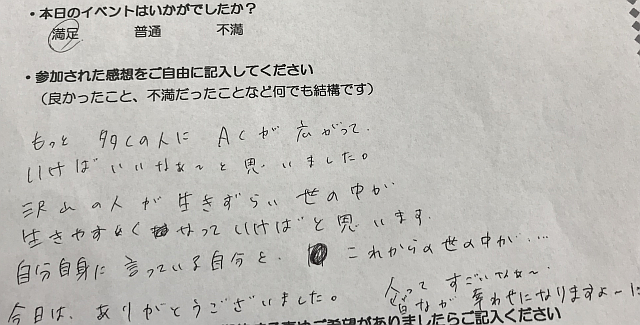 ・本日のイベントはいかがでしたか？
満足 普通 不満
・参加された感想をご自由に記入してください
（良かったこと、不満だったことなど何でも結構です）
もっと 多くの人に ACが 広がって
いけばいいなぁ～と思いました。
沢山の人が生きずらい世の中が
生きやすくなっていけばと思います。
自分自身に言っている自分と、これからの世の中が…
人って すごいなぁ～
今日は、ありがとうございました。
皆なが 幸わせになりますよ～に
ご希望がありましたらご記入ください